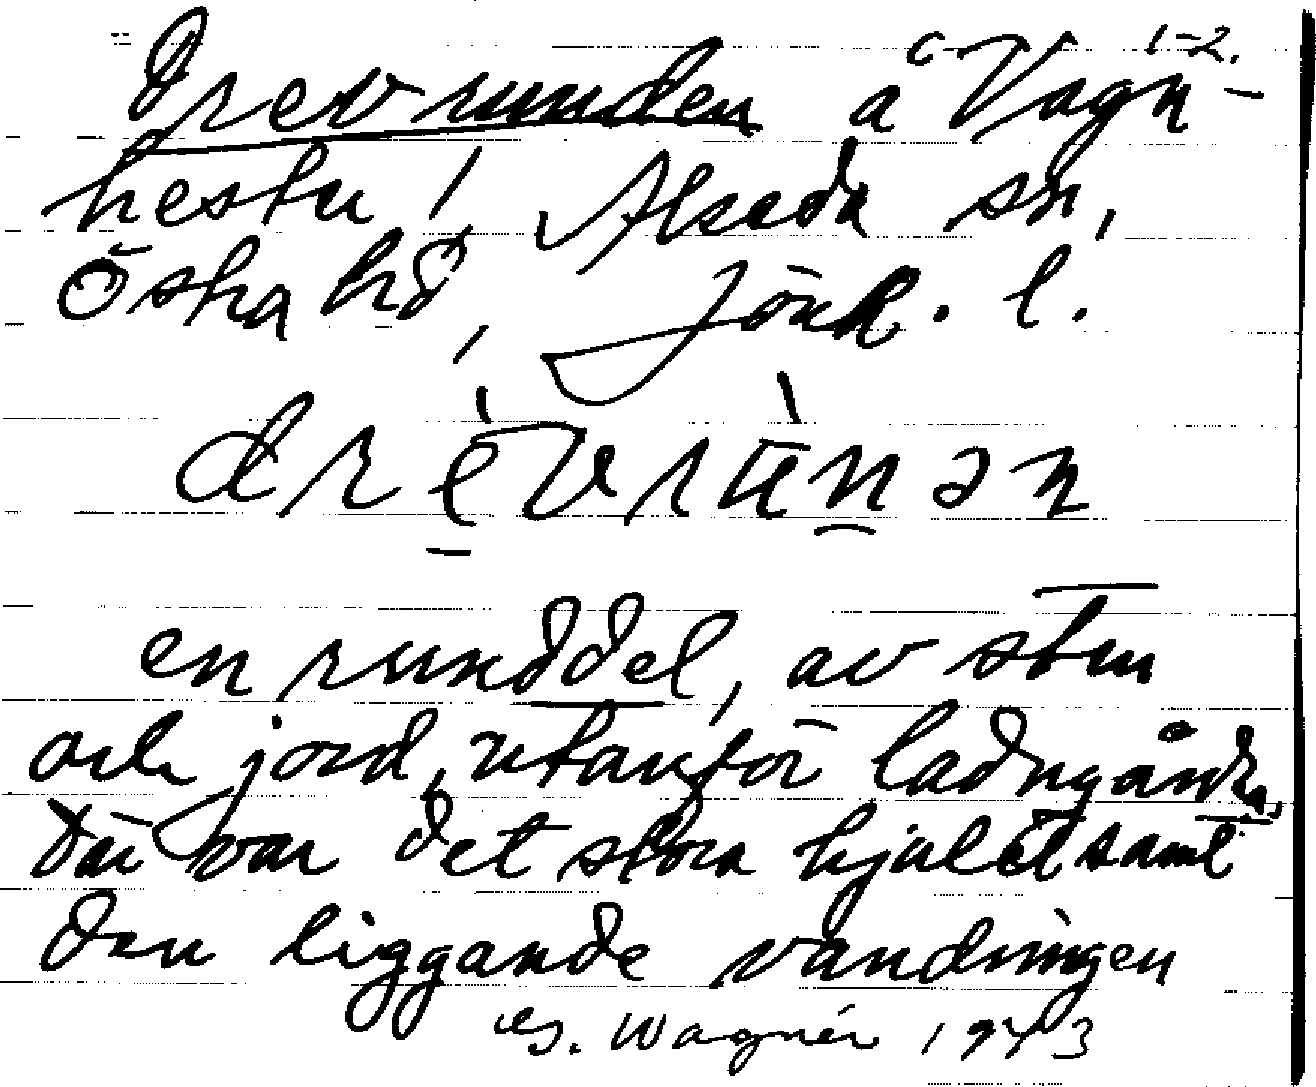 1-2.
Drevrunden å Vagn-
hestu / Alseda sn,
Östra hd, Jönk. l.
drèvrùnən
en runddel, av sten
och jord, utanför ladugården,
där var det stora hjulet samt
den liggande vandringen
G. Wagnér 1943